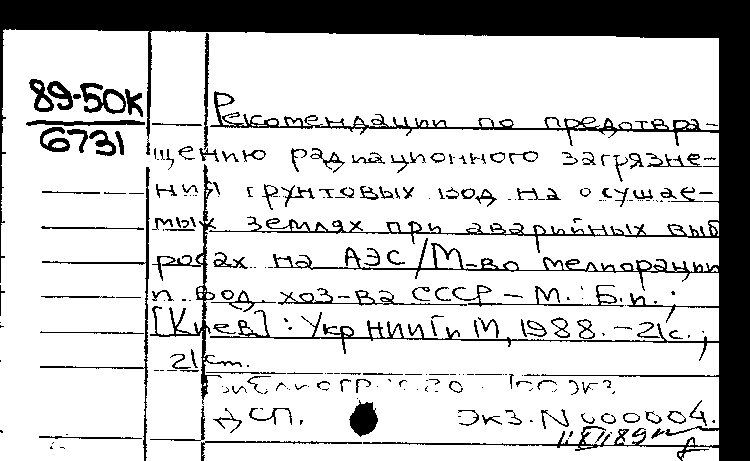 89-50К
6731
Рекомендации по предотвра-
щению радиационного загрязне-
ния грунтовых вод на осушае-
мых землях при аварийных выб
росах на АЭС/М-во мелиорации
и вод. хоз-ва СССР - М.: Б.и.;
[Киев]: УкрНИИГиМ, 1988. - 21с.;
21 см.
100 экз
ДСП. Экз. N 000004.